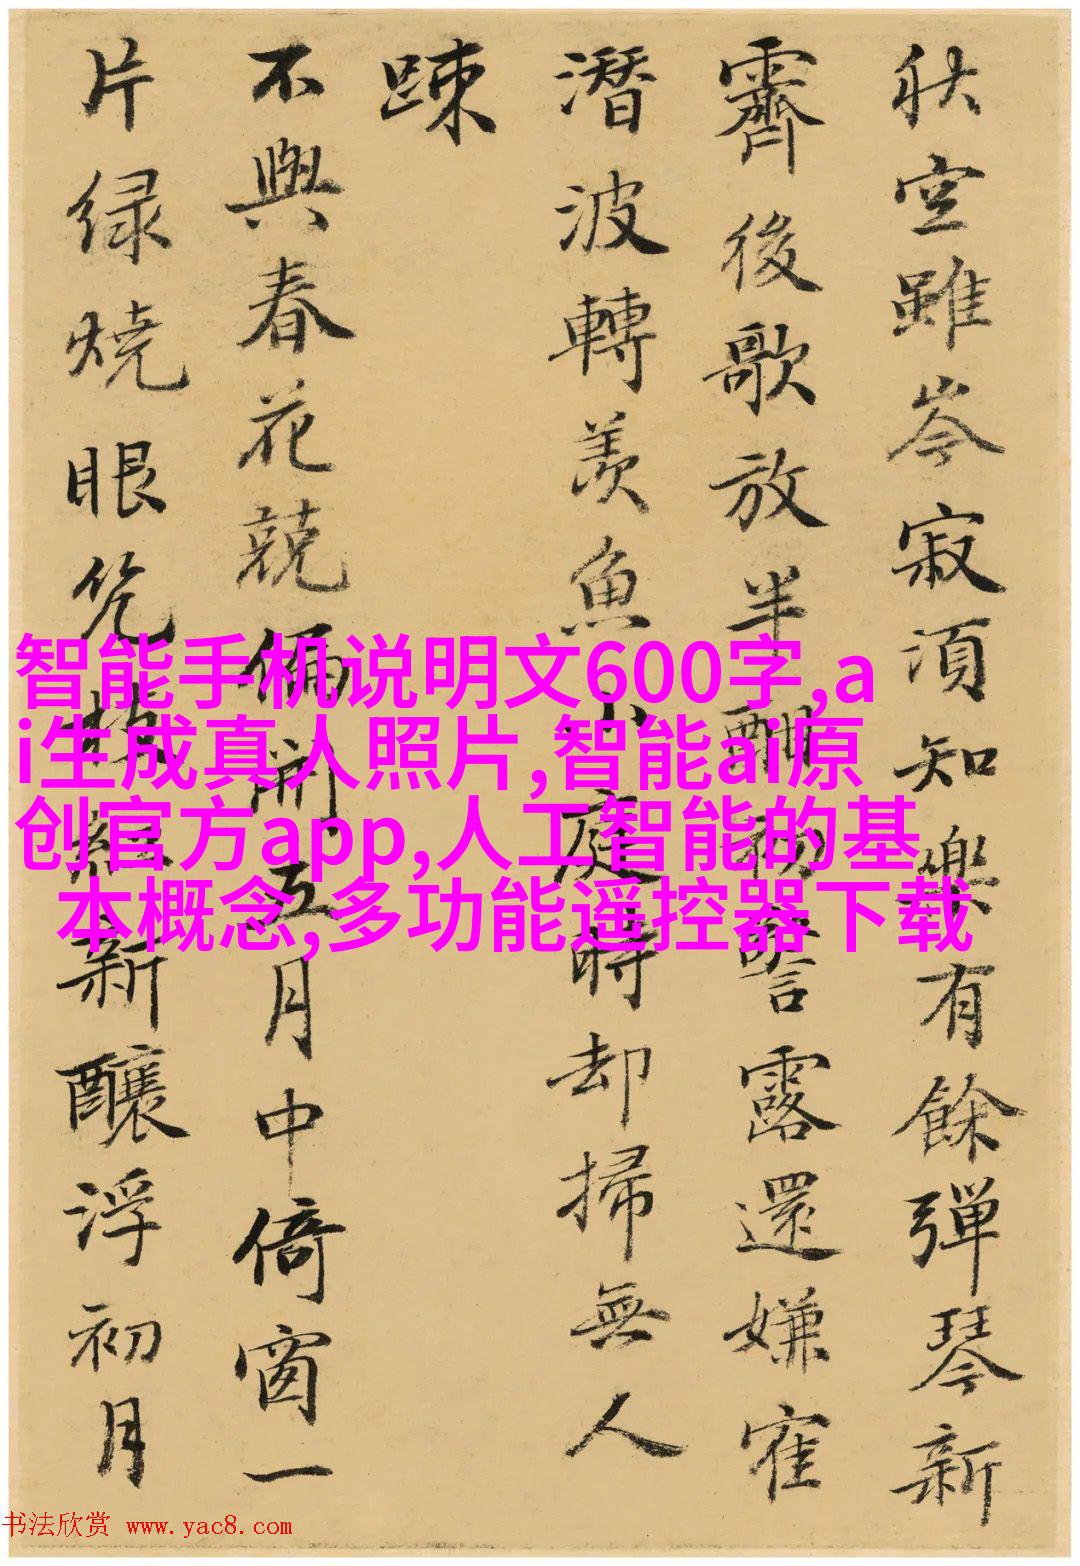 秋空雖岑寂須知樂有餘彈琴新
霽後歌放半酣初警露還嫌寉
潛波轉羨魚小庭時却掃無人
踈
不與春花競偏開五月中倚窗一
片緑燒眼紅新釀浮初月
智能手机说明文600字,a
i生成真人照片,智能ai原
创官方app,人工智能的基
本概念,多功能遥控器下载
书法欣赏 www.yac8.com